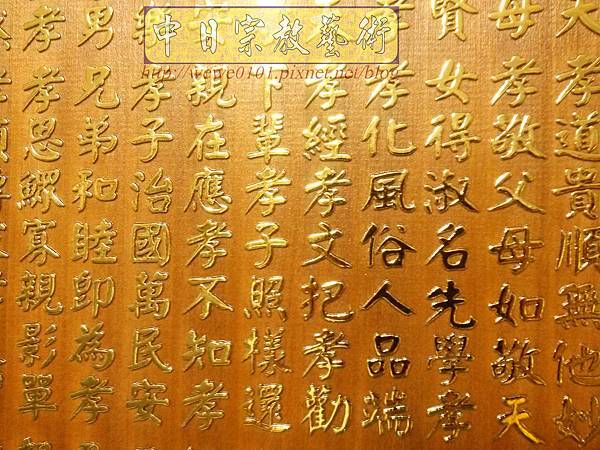 中日宗教藝術
http://weiye0101.pixnet.net/blog
大孝道貴順無他妙
母孝敬父母如敬天
賢女得淑名先學孝
孝孝化風俗人品端
孝經孝文把孝勸
下輩孝子照樣還
親在應孝不知孝
孝子治國萬民安
男兄弟和睦即為孝
孝孝思鰥寡親影單